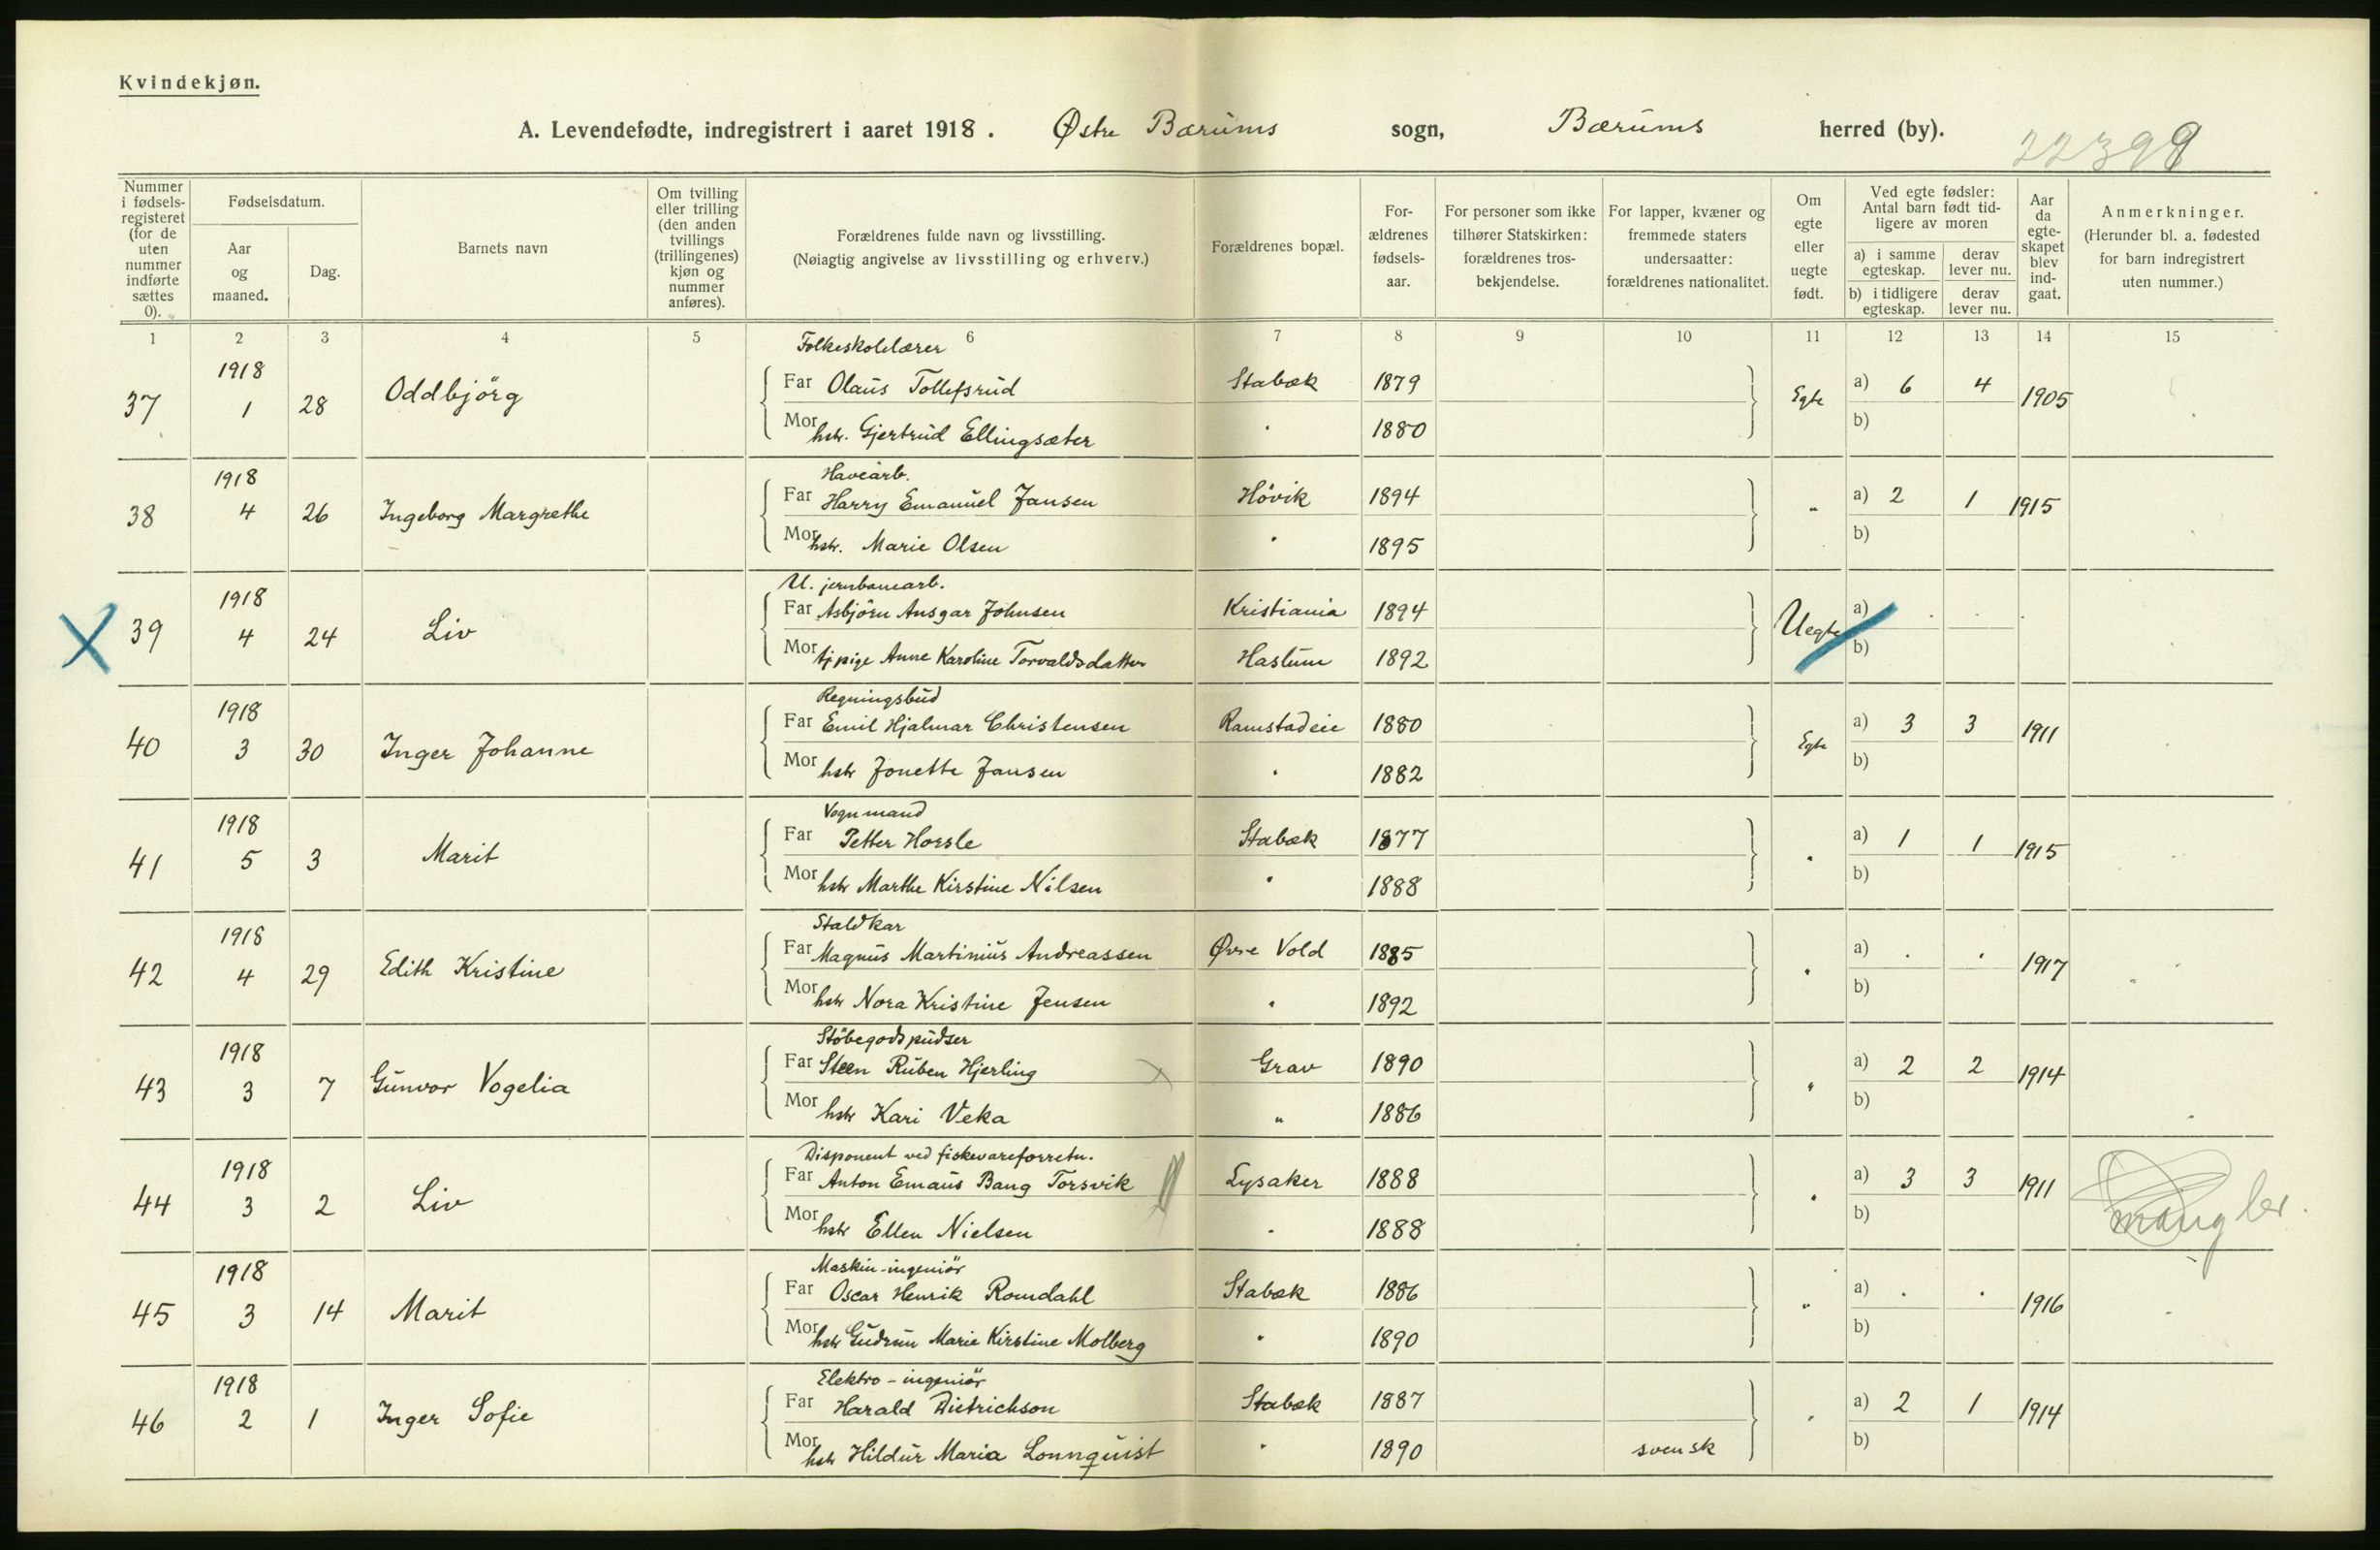 Kvindekjøn.
A. Levendefødte, indregistrert i aaret 1918. Østre Bærums sogn, Bærums herred (by).
Nummer i fødsels-registeret (for de uten nummer indførte sættes 0).
Fødselsdatum.
Aar og maaned.
Dag.
Barnets navn
Om tvilling eller trilling (den anden tvillings (trillingenes) kjøn og nummer anføres).
Forældrenes fulde navn og livsstilling.
(Nøiagtig angivelse av livsstilling og erhverv.)
Forældrenes bopæl.
For-ældrenes fødsels-aar.
For personer som ikke tilhører Statskirken: forældrenes tros-bekjendelse.
For lapper, kvæner og fremmede staters undersaatter: forældrenes nationalitet.
Om egte eller uegte født.
Ved egte fødsler: Antal barn født tid-ligere av moren
a) i samme egteskap. derav lever nu.
b) i tidligere egteskap. derav lever nu.
Aar da egte-skapet blev ind-gaat.
Anmerkninger.
(Herunder bl. a. fødested for barn indregistrert uten nummer.)
1 2 3 4 5 6 7 8 9 10 11 12 13 14 15
Folkeskolelærer
37 1918 1 28 Oddbjörg Far Olaus Tollefsrud Stabæk 1879 Egte a) 6 4 1905
Mor hstr. Gjertrud Ellingsæter " 1880 b)
Havearb.
38 1918 4 26 Ingeborg Margrethe Far Harry Emanuel Jansen Hövik 1894 " a) 2 1 1915
Mor hstr. Marie Olsen " 1895 b)
U. jernbanearb.
39 1918 4 24 Liv Far Asbjörn Ansgar Johnsen Kristiania 1894 Uegte a) . . .
Mor tjpige Anne Karoline Torvaldsdatter Haslum 1892 b)
Regningsbud
40 1918 3 30 Inger Johanne Far Emil Hjalmar Christensen Ramstadeie 1880 Egte a) 3 3 1911
Mor hstr Jonette Jansen " 1882 b)
Vognmand
41 1918 5 3 Marit Far Petter Horsle Stabæk 1877 " a) 1 1 1915
Mor hstr Marthe Kirstine Nilsen " 1888 b)
Staldkar
42 1918 4 29 Edith Kristine Far Magnus Martinius Andreassen Øvre Vold 1885 " a) . . 1917
Mor hstr Nora Kristine Jensen " 1892 b)
Stöbegodspudser
43 1918 3 7 Gunvor Vogelia Far Steen Ruben Hjerling Grav 1890 " a) 2 2 1914
Mor hstr Kari Veka " 1886 b)
Disponent ved fiskevareforretn.
44 1918 3 2 Liv Far Anton Emaus Bang Torsvik Lysaker 1888 " a) 3 3 1911 mangler.
Mor hstr Ellen Nielsen " 1888 b)
Maskin-ingeniör
45 1918 3 14 Marit Far Oscar Henrik Romdahl Stabæk 1886 " a) . . 1916
Mor hstr Gudrun Marie Kirstine Molberg " 1890 b)
Elektro-ingeniör
46 1918 2 1 Inger Sofie Far Harald Dietrichson Stabæk 1887 " a) 2 1 1914
Mor hstr Hildur Maria Lonnquist " 1890 svensk b)